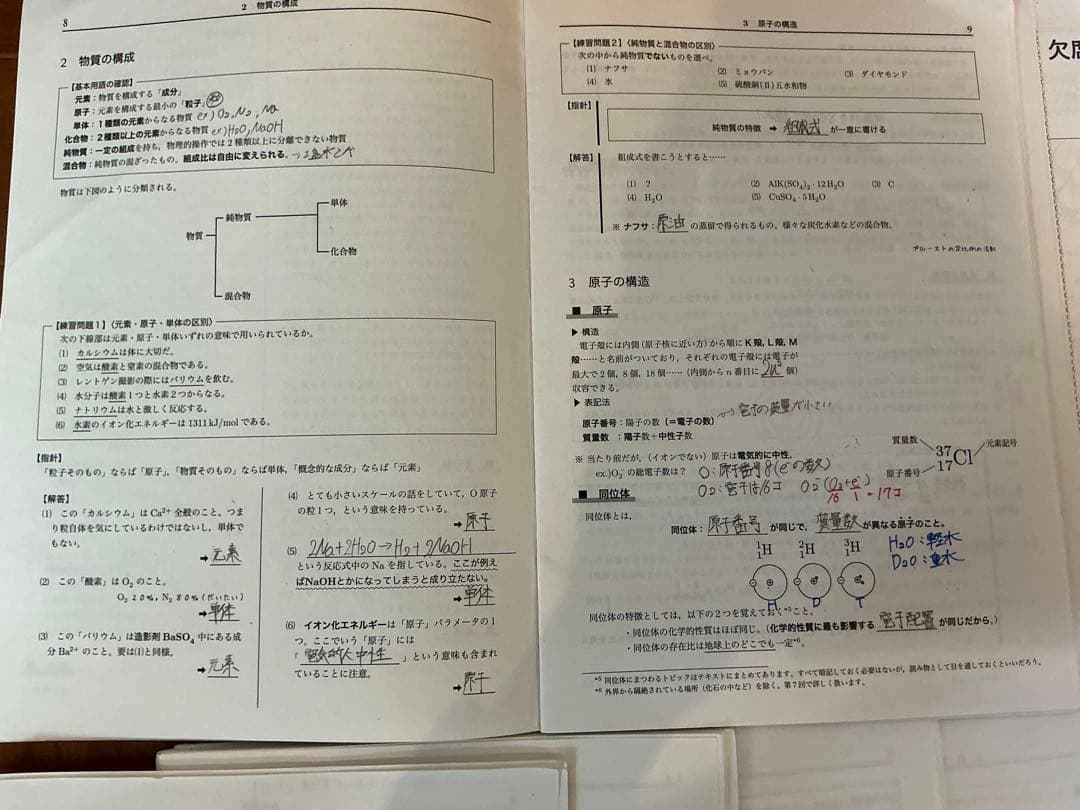 8
2 物質の構成
2 物質の構成
【基本用語の確認】
元素：物質を構成する「成分」
原子：元素を構成する最小の「粒子」
単体：1種類の元素からなる物質 ex) O2, N2, Na
化合物：2種類以上の元素からなる物質 ex) H2O, NaOH
純物質：一定の組成を持ち，物理的操作では2種類以上に分離できない物質
混合物：純物質の混ざったもの。組成比は自由に変えられる。
物質は下図のように分類される。
単体
純物質
物質
化合物
混合物
【練習問題1】〈元素・原子・単体の区別〉
次の下線部は元素・原子・単体いずれの意味で用いられているか。
(1) カルシウムは体に大切だ。
(2) 空気は酸素と窒素の混合物である。
(3) レントゲン撮影の際にはバリウムを飲む。
(4) 水分子は酸素1つと水素2つからなる。
(5) ナトリウムは水と激しく反応する。
(6) 水素のイオン化エネルギーは1311kJ/molである。
【指針】
「粒子そのもの」ならば「原子」，「物質そのもの」ならば単体，「概念的な成分」ならば「元素」
【解答】
(1) この「カルシウム」は Ca²⁺ 全般のこと。つま
り粒自体を気にしているわけではないし，単体で
もない。
➡ 元素
(2) この「酸素」は O₂ のこと。
O₂ 20%, N₂ 80% (だいたい)
➡ 単体
(3) この「バリウム」は造影剤 BaSO₄ 中にある成
分 Ba²⁺ のこと。要は(1)と同様。
➡ 元素
(4) とても小さいスケールの話をしていて，O原子
の粒1つ，という意味を持っている。
➡ 原子
(5) 2Na+2H2O→H2+2NaOH
という反応式中の Na を指している。ここが例え
ばNaOHとかになってしまうと成り立たない。
➡ 単体
(6) イオン化エネルギーは「原子」パラメータの1
つ。ここでいう「原子」には
「電気的に中性」という意味も含まれ
ていることに注意。
➡ 原子
3 原子の構造
9
【練習問題2】〈純物質と混合物の区別〉
次の中から純物質でないものを選べ。
(1) ナフサ (2) ミョウバン (3) ダイヤモンド
(4) 氷 (5) 硫酸銅(II)五水和物
【指針】
純物質の特徴 ➡ 組成式 が一意に書ける
【解答】 組成式を書こうとすると……
(1) ? (2) AlK(SO₄)₂・12H₂O (3) C
(4) H₂O (5) CuSO₄・5H₂O
※ ナフサ：原油 の蒸留で得られるもの。様々な炭化水素などの混合物。
プルーストの定比例の法則
3 原子の構造
■ 原子
▶ 構造
電子殻には内側（原子核に近い方）から順にK殻，L殻，M
殻……と名前がついており，それぞれの電子殻には電子が
最大で2個，8個，18個……（内側からn番目に 2n² 個）
収容できる。
▶ 表記法
原子番号：陽子の数（＝電子の数）
質量数 ：陽子数＋中性子数
質量数 37 Cl 元素記号
原子番号 17
※ 当たり前だが，（イオンでない）原子は電気的に中性。
ex.)O₂⁻ の総電子数は？ O：原子番号8(e⁻の数)
O2：電子は16コ O2⁻ (O2+e⁻)
16 1 = 17コ
■ 同位体
同位体とは，
同位体：原子番号 が同じで，質量数 が異なる原子のこと。
¹₁H ²₁H ³₁H
H D T
H2O：軽水
D2O：重水
同位体の特徴としては，以下の2つを覚えておく*⁵こと。
・同位体の化学的性質はほぼ同じ。（化学的性質に最も影響する 電子配置 が同じだから。）
・同位体の存在比は地球上のどこでも一定*⁶。
*⁵ 同位体にまつわるトピックはテキストにまとめてあります。すべて暗記しておく必要はないが，読み物として目を通しておくといいだろう。
*⁶ 外界から隔絶されている場所（化石の中など）を除く。第7回で詳しく扱います。